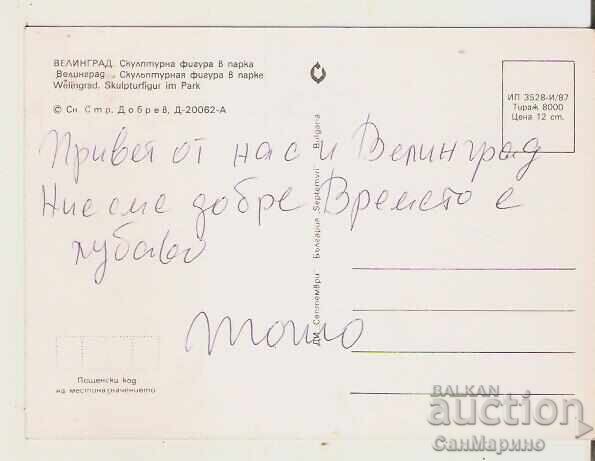 ВЕЛИНГРАД. Скулптурна фигура в парка
Велинград. Скульптурная фигура в парке
Welingrad. Skulpturfigur im Park
© Сн. Стр. Добрев, Д-20062-А
ИП 3528-И/87
Тираж 8000
Цена 12 ст.
Привет от нас и Велинград
Ние сме добре Времето е
хубаво
Тошо
ДИ „Септември" България „Septemvri" Bulgaria
Пощенски код
на местоназначението
BALKAN
auction
СанМарино